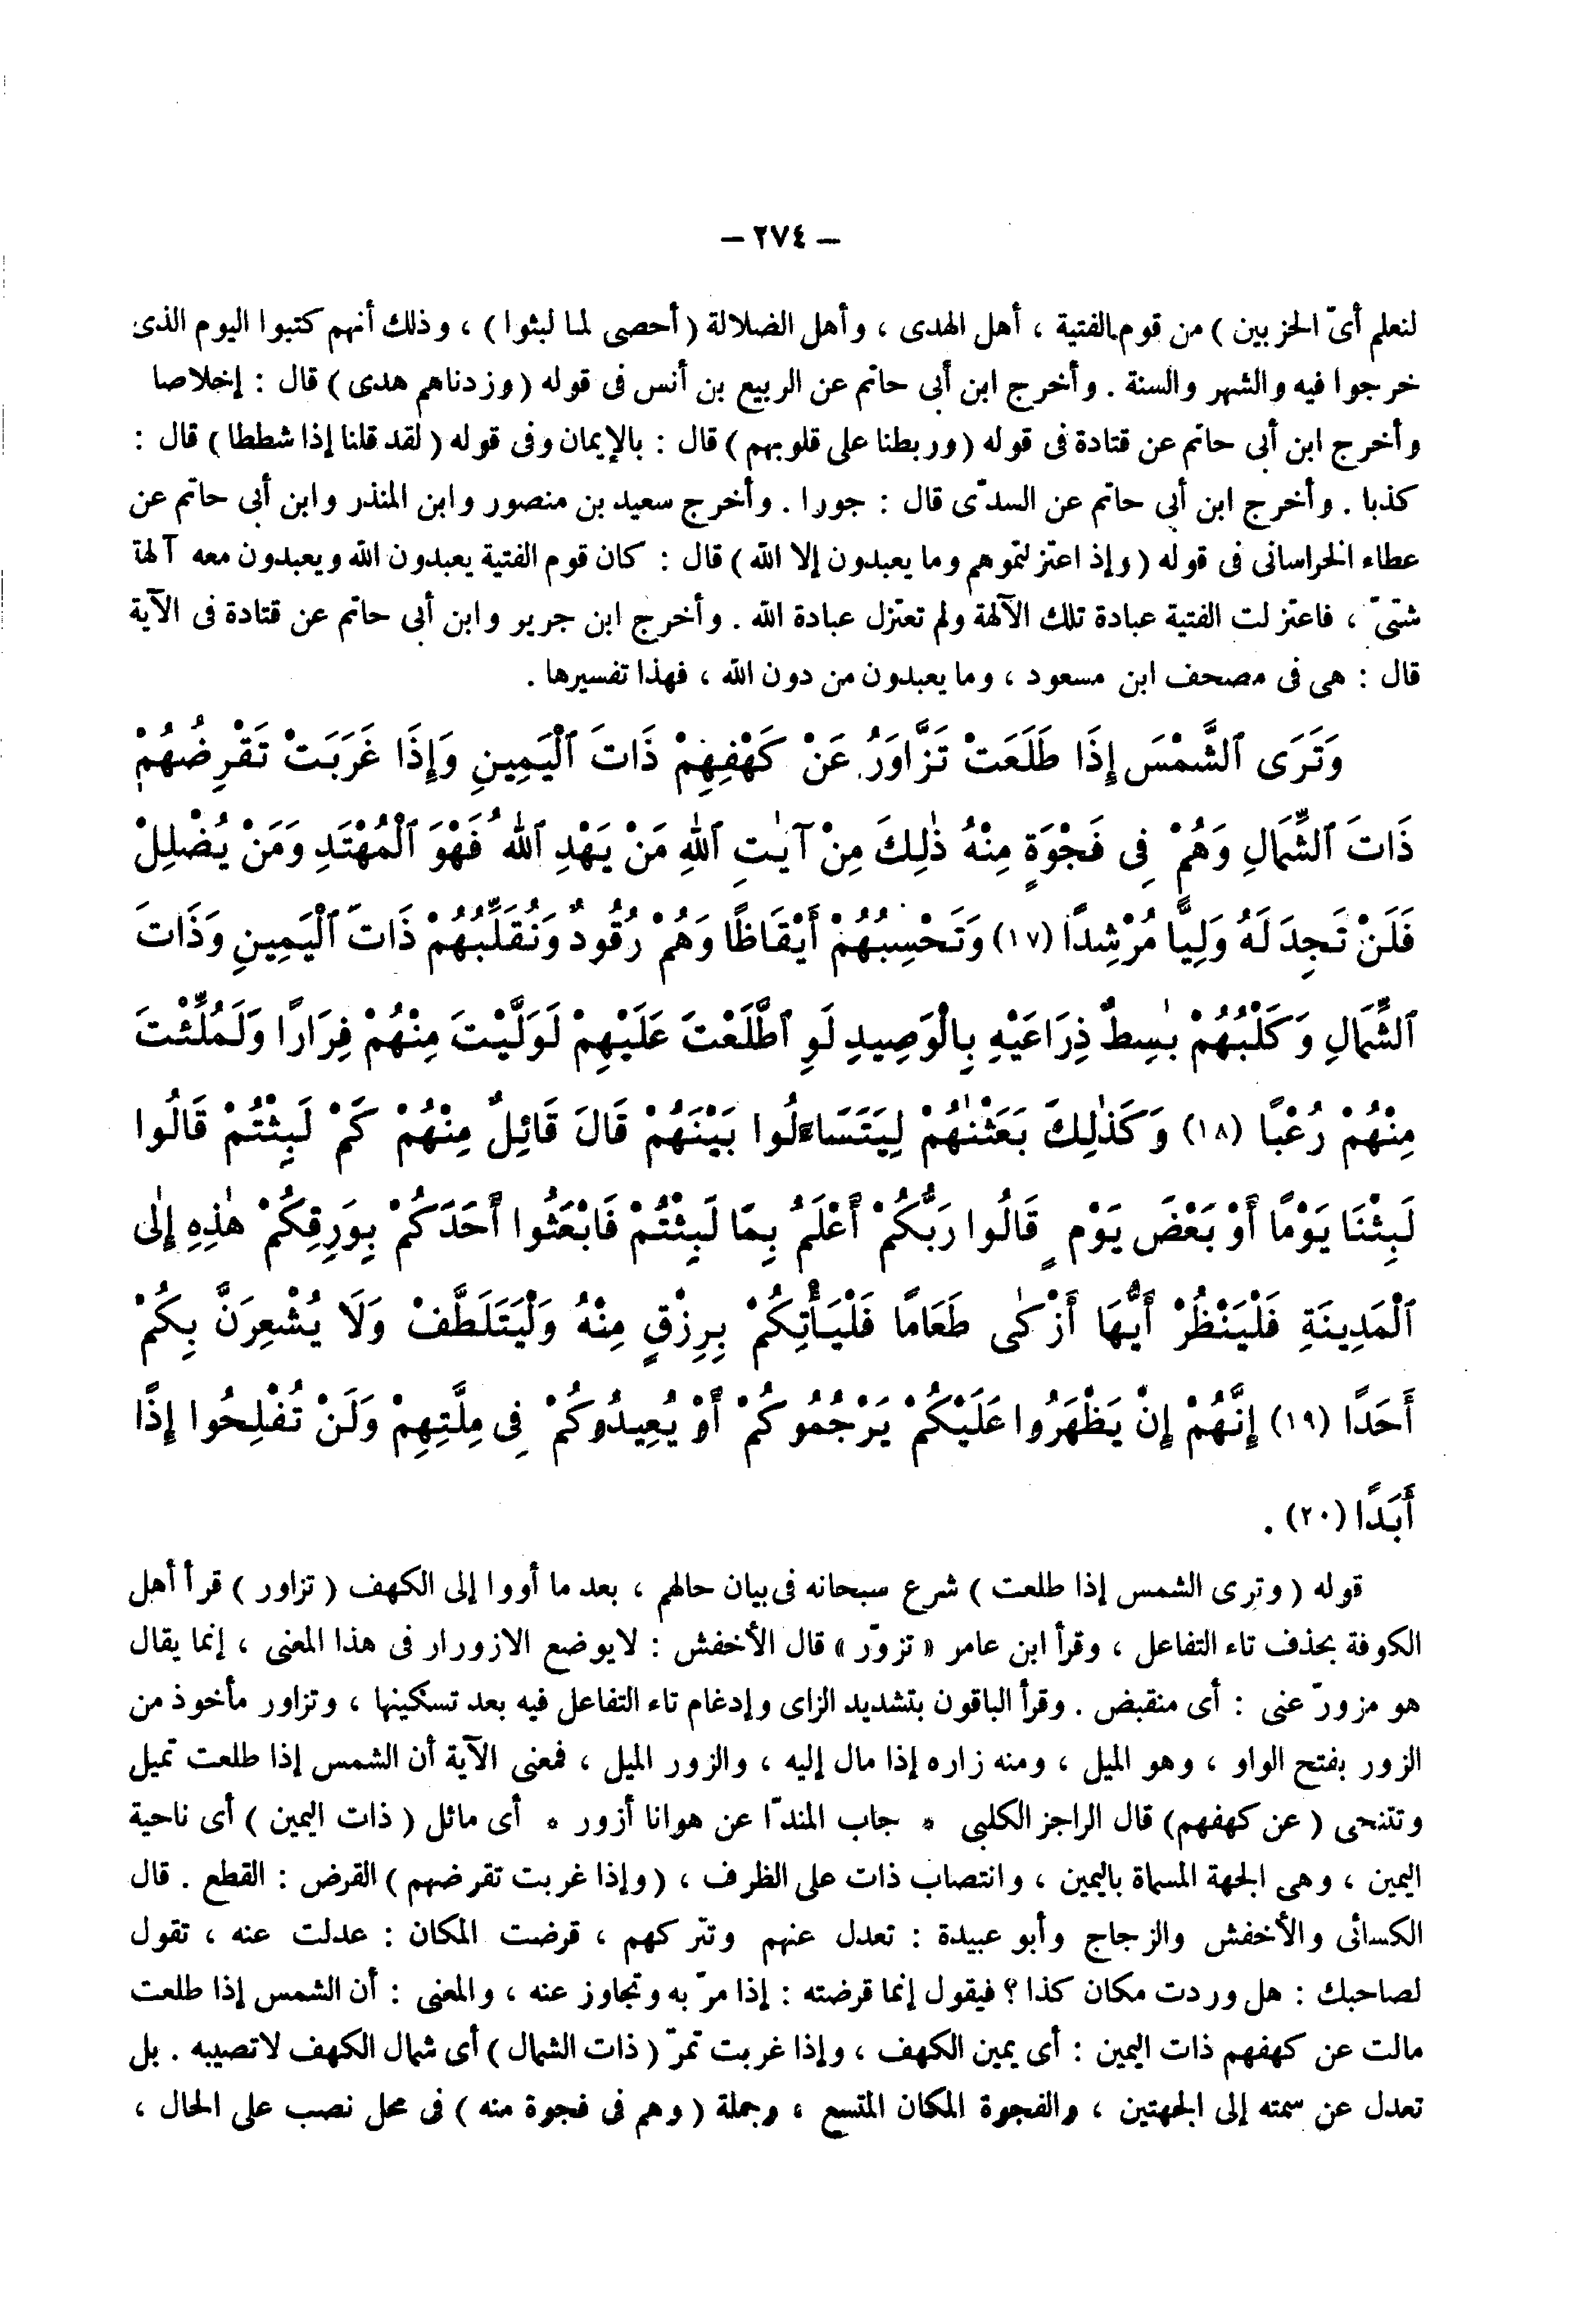 – ٢٧٤ –
لنعلم أىّ الحزبين ) من قوم الفتية ، أهل الهدى ، وأهل الضلالة ( أحصى لما لبثوا ) ، وذلك أنهم كتبوا اليوم الذى
خرجوا فيه والشهر والسنة . وأخرج ابن أبى حاتم عن الربيع بن أنس فى قوله ( وزدناهم هدى ) قال : إخلاصا
وأخرج ابن أبى حاتم عن قتادة فى قوله ( وربطنا على قلوبهم ) قال : بالإيمان وفى قوله ( لقد قلنا إذا شططا ) قال :
كذبا . وأخرج ابن أبى حاتم عن السدّى قال : جورا . وأخرج سعيد بن منصور وابن المنذر وابن أبى حاتم عن
عطاء الخراسانى فى قوله ( وإذ اعتزلتموهم وما يعبدون إلا الله ) قال : كان قوم الفتية يعبدون الله ويعبدون معه آلهة
شتىّ ، فاعتزلت الفتية عبادة تلك الآلهة ولم تعتزل عبادة الله . وأخرج ابن جرير وابن أبى حاتم عن قتادة فى الآية
قال : هى فى مصحف ابن مسعود ، وما يعبدون من دون الله ، فهذا تفسيرها .
وَتَرَى ٱلشَّمْسَ إِذَا طَلَعَتْ تَزَّاوَرُ عَنْ كَهْفِهِمْ ذَاتَ ٱلْيَمِينِ وَإِذَا غَرَبَتْ تَقْرِضُهُمْ
ذَاتَ ٱلشِّمَالِ وَهُمْ فِى فَجْوَةٍ مِنْهُ ذٰلِكَ مِنْ آيٰتِ ٱللهِ مَنْ يَهْدِ ٱللهُ فَهْوَ ٱلْمُهْتَدِ وَمَنْ يُضْلِلْ
فَلَنْ تَجِدَ لَهُ وَلِيًّا مُرْشِدًا (١٧) وَتَحْسِبُهُمْ أَيْقَاظًا وَهُمْ رُقُودٌ وَنُقَلِّبُهُمْ ذَاتَ ٱلْيَمِينِ وَذَاتَ
ٱلشِّمَالِ وَكَلْبُهُمْ بٰسِطٌ ذِرَاعَيْهِ بِالْوَصِيدِ لَوِ ٱطَّلَعْتَ عَلَيْهِمْ لَوَلَّيْتَ مِنْهُمْ فِرَارًا وَلَمُلِّئْتَ
مِنْهُمْ رُعْبًا (١٨) وَكَذٰلِكَ بَعَثْنٰهُمْ لِيَتَسَاءَلُوا بَيْنَهُمْ قَالَ قَائِلٌ مِنْهُمْ كَمْ لَبِثْتُمْ قَالُوا
لَبِثْنَا يَوْمًا أَوْ بَعْضَ يَوْمٍ قَالُوا رَبُّكُمْ أَعْلَمُ بِمَا لَبِثْتُمْ فَابْعَثُوا أَحَدَكُمْ بِوَرِقِكُمْ هٰذِهِ إِلٰى
ٱلْمَدِينَةِ فَلْيَنْظُرْ أَيُّهَا أَزْكٰى طَعَامًا فَلْيَأْتِكُمْ بِرِزْقٍ مِنْهُ وَلْيَتَلَطَّفْ وَلَا يُشْعِرَنَّ بِكُمْ
أَحَدًا (١٩) إِنَّهُمْ إِنْ يَظْهَرُوا عَلَيْكُمْ يَرْجُمُوكُمْ أَوْ يُعِيدُوكُمْ فِى مِلَّتِهِمْ وَلَنْ تُفْلِحُوا إِذًا
أَبَدًا (٢٠) .
قوله ( وترى الشمس إذا طلعت ) شرع سبحانه فى بيان حالهم ، بعد ما أووا إلى الكهف ( تزاور ) قرأ أهل
الكوفة بحذف تاء التفاعل ، وقرأ ابن عامر « تزوّر » قال الأخفش : لا يوضع الازورار فى هذا المعنى ، إنما يقال
هو مزورّ عنى : أى منقبض . وقرأ الباقون بتشديد الزاى وإدغام تاء التفاعل فيه بعد تسكينها ، وتزاور مأخوذ من
الزور بفتح الواو ، وهو الميل ، ومنه زاره إذا مال إليه ، والزور الميل ، فمعنى الآية أن الشمس إذا طلعت تميل
وتتنحى ( عن كهفهم ) قال الراجز الكلبى * جاب المندّا عن هوانا أزور * أى مائل ( ذات اليمين ) أى ناحية
اليمين ، وهى الجهة المسماة باليمين ، وانتصاب ذات على الظرف ، ( وإذا غربت تقرضهم ) القرض : القطع . قال
الكسائى والأخفش والزجاج وأبو عبيدة : تعدل عنهم وتتركهم ، قرضت المكان : عدلت عنه ، تقول
لصاحبك : هل وردت مكان كذا ؟ فيقول إنما قرضته : إذا مرّ به وتجاوز عنه ، والمعنى : أن الشمس إذا طلعت
مالت عن كهفهم ذات اليمين : أى يمين الكهف ، وإذا غربت تمرّ ( ذات الشمال ) أى شمال الكهف لا تصيبه . بل
تعدل عن سمته إلى الجهتين ، والفجوة المكان المتسع ، وجملة ( وهم فى فجوة منه ) فى محل نصب على الحال ،